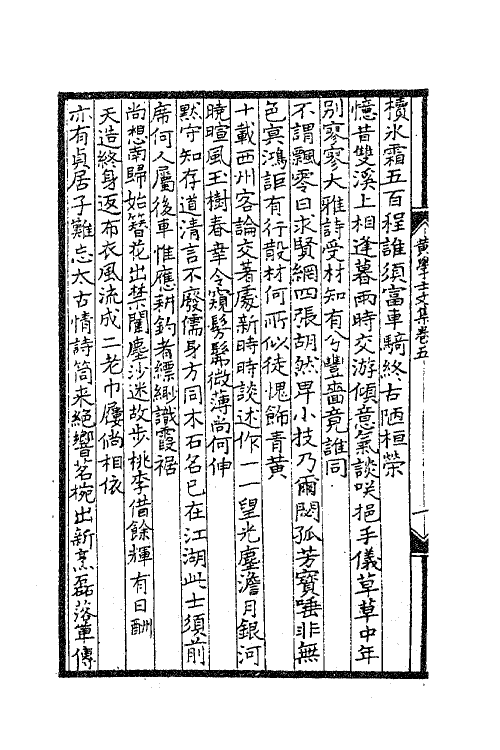 櫝氷霜五百程誰須富車騎終古陋桓榮
憶昔雙溪上相逢暮雨時交游傾意氣談咲挹手儀草草中年
別寥寥大雅詩受材知有分豐嗇竟誰同
不謂飄零日求賢網四張胡然卑小技乃爾閟孤芳寶唾非無
色㝠鴻詎有行散材何所似徒愧飾青黄
十載西州客論交著處新時時談述作一一望光塵澹月銀河
曉暄風玉樹春幸令窺髣髴微薄尚何伸
黙守知存道清言不廢儒身方同木石名已在江湖此士須前
席何人屬後車惟應耕釣者縹緲識霞裾
尚想南歸始簪花出禁闈塵沙迷故步桃李借餘輝有日酬
天造終身返布衣風流成二老巾屨倘相依
亦有貞居子難忘太古情詩筒来絶響茗椀出新烹磊落軍傳
黄學士文集卷五